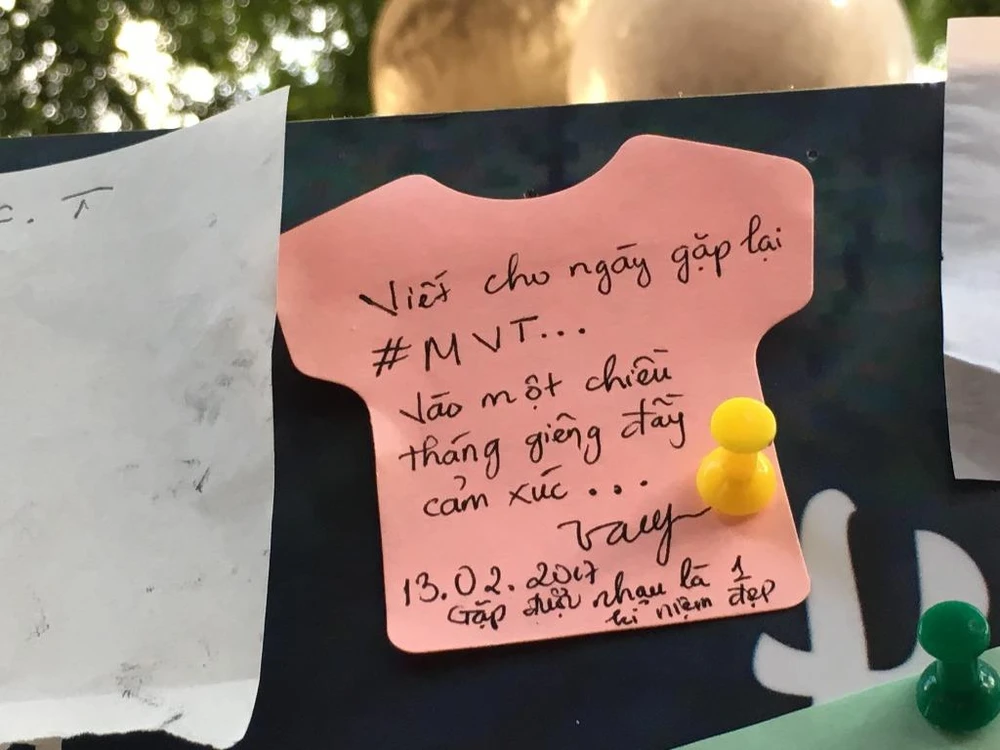 C. T
Viết cho ngày gặp lại
#MVT...
Vào một chiều
tháng giêng đầy
cảm xúc...
13.02.2017
Gặp được nhau là 1
kỉ niệm đẹp